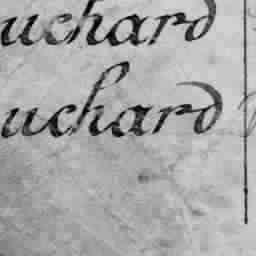 uchard
uchard